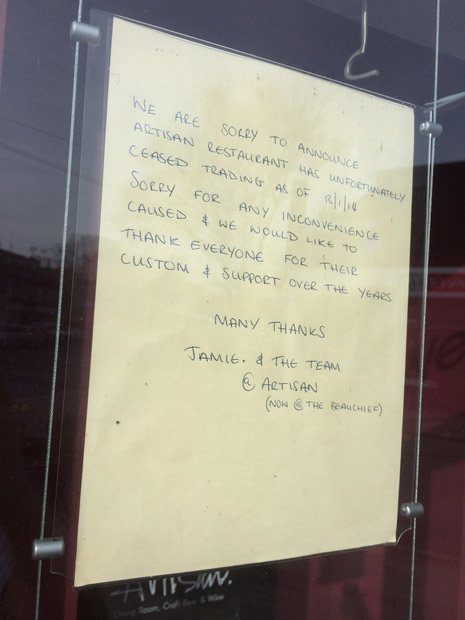 WE ARE SORRY TO ANNOUNCE
ARTISAN RESTAURANT HAS UNFORTUNATELY
CEASED TRADING AS OF 13/1/14
SORRY FOR ANY INCONVENIENCE
CAUSED & WE WOULD LIKE TO
THANK EVERYONE FOR THEIR
CUSTOM & SUPPORT OVER THE YEARS
MANY THANKS
JAMIE. & THE TEAM
@ ARTISAN
(NOW @ THE BEAUCHIEF)
Artisan.
Dining Room, Craft Beer & Wine